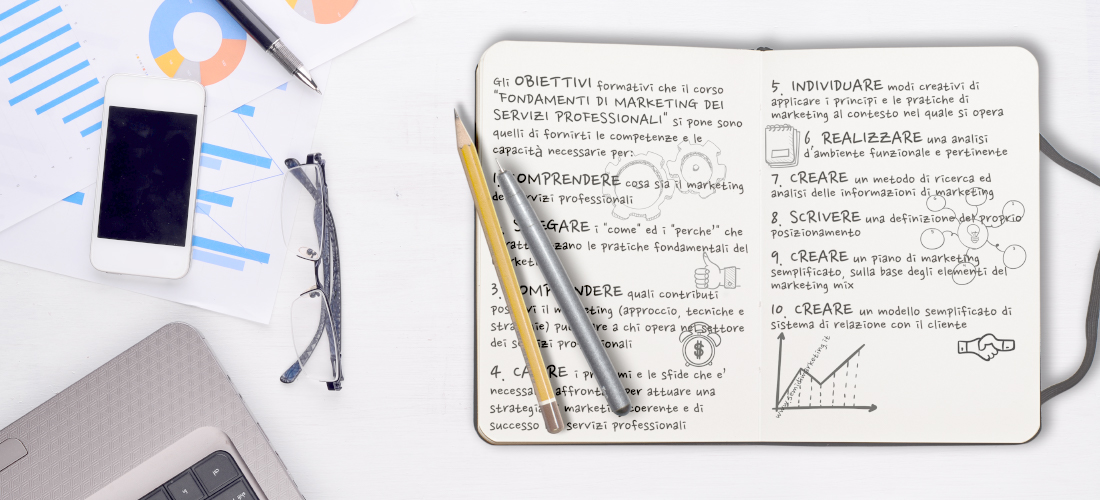 Gli OBIETTIVI formativi che il corso
"FONDAMENTI DI MARKETING DEI
SERVIZI PROFESSIONALI" si pone sono
quelli di fornirti le competenze e le
capacità necessarie per:
1. COMPRENDERE cosa sia il marketing
dei servizi professionali
SPIEGARE i "come" ed i "perche'" che
caratterizzano le pratiche fondamentali del
marketing
3. COMPRENDERE quali contributi
possa il marketing (approccio, tecniche e
strategie) può dare a chi opera nel settore
dei servizi professionali
4. CAPIRE i problemi e le sfide che e'
necessario affrontare per attuare una
strategia di marketing coerente e di
successo servizi professionali
5. INDIVIDUARE modi creativi di
applicare i principi e le pratiche di
marketing al contesto nel quale si opera
6. REALIZZARE una analisi
d'ambiente funzionale e pertinente
7. CREARE un metodo di ricerca ed
analisi delle informazioni di marketing
8. SCRIVERE una definizione del proprio
posizionamento
9. CREARE un piano di marketing
semplificato, sulla base degli elementi del
marketing mix
10. CREARE un modello semplificato di
sistema di relazione con il cliente